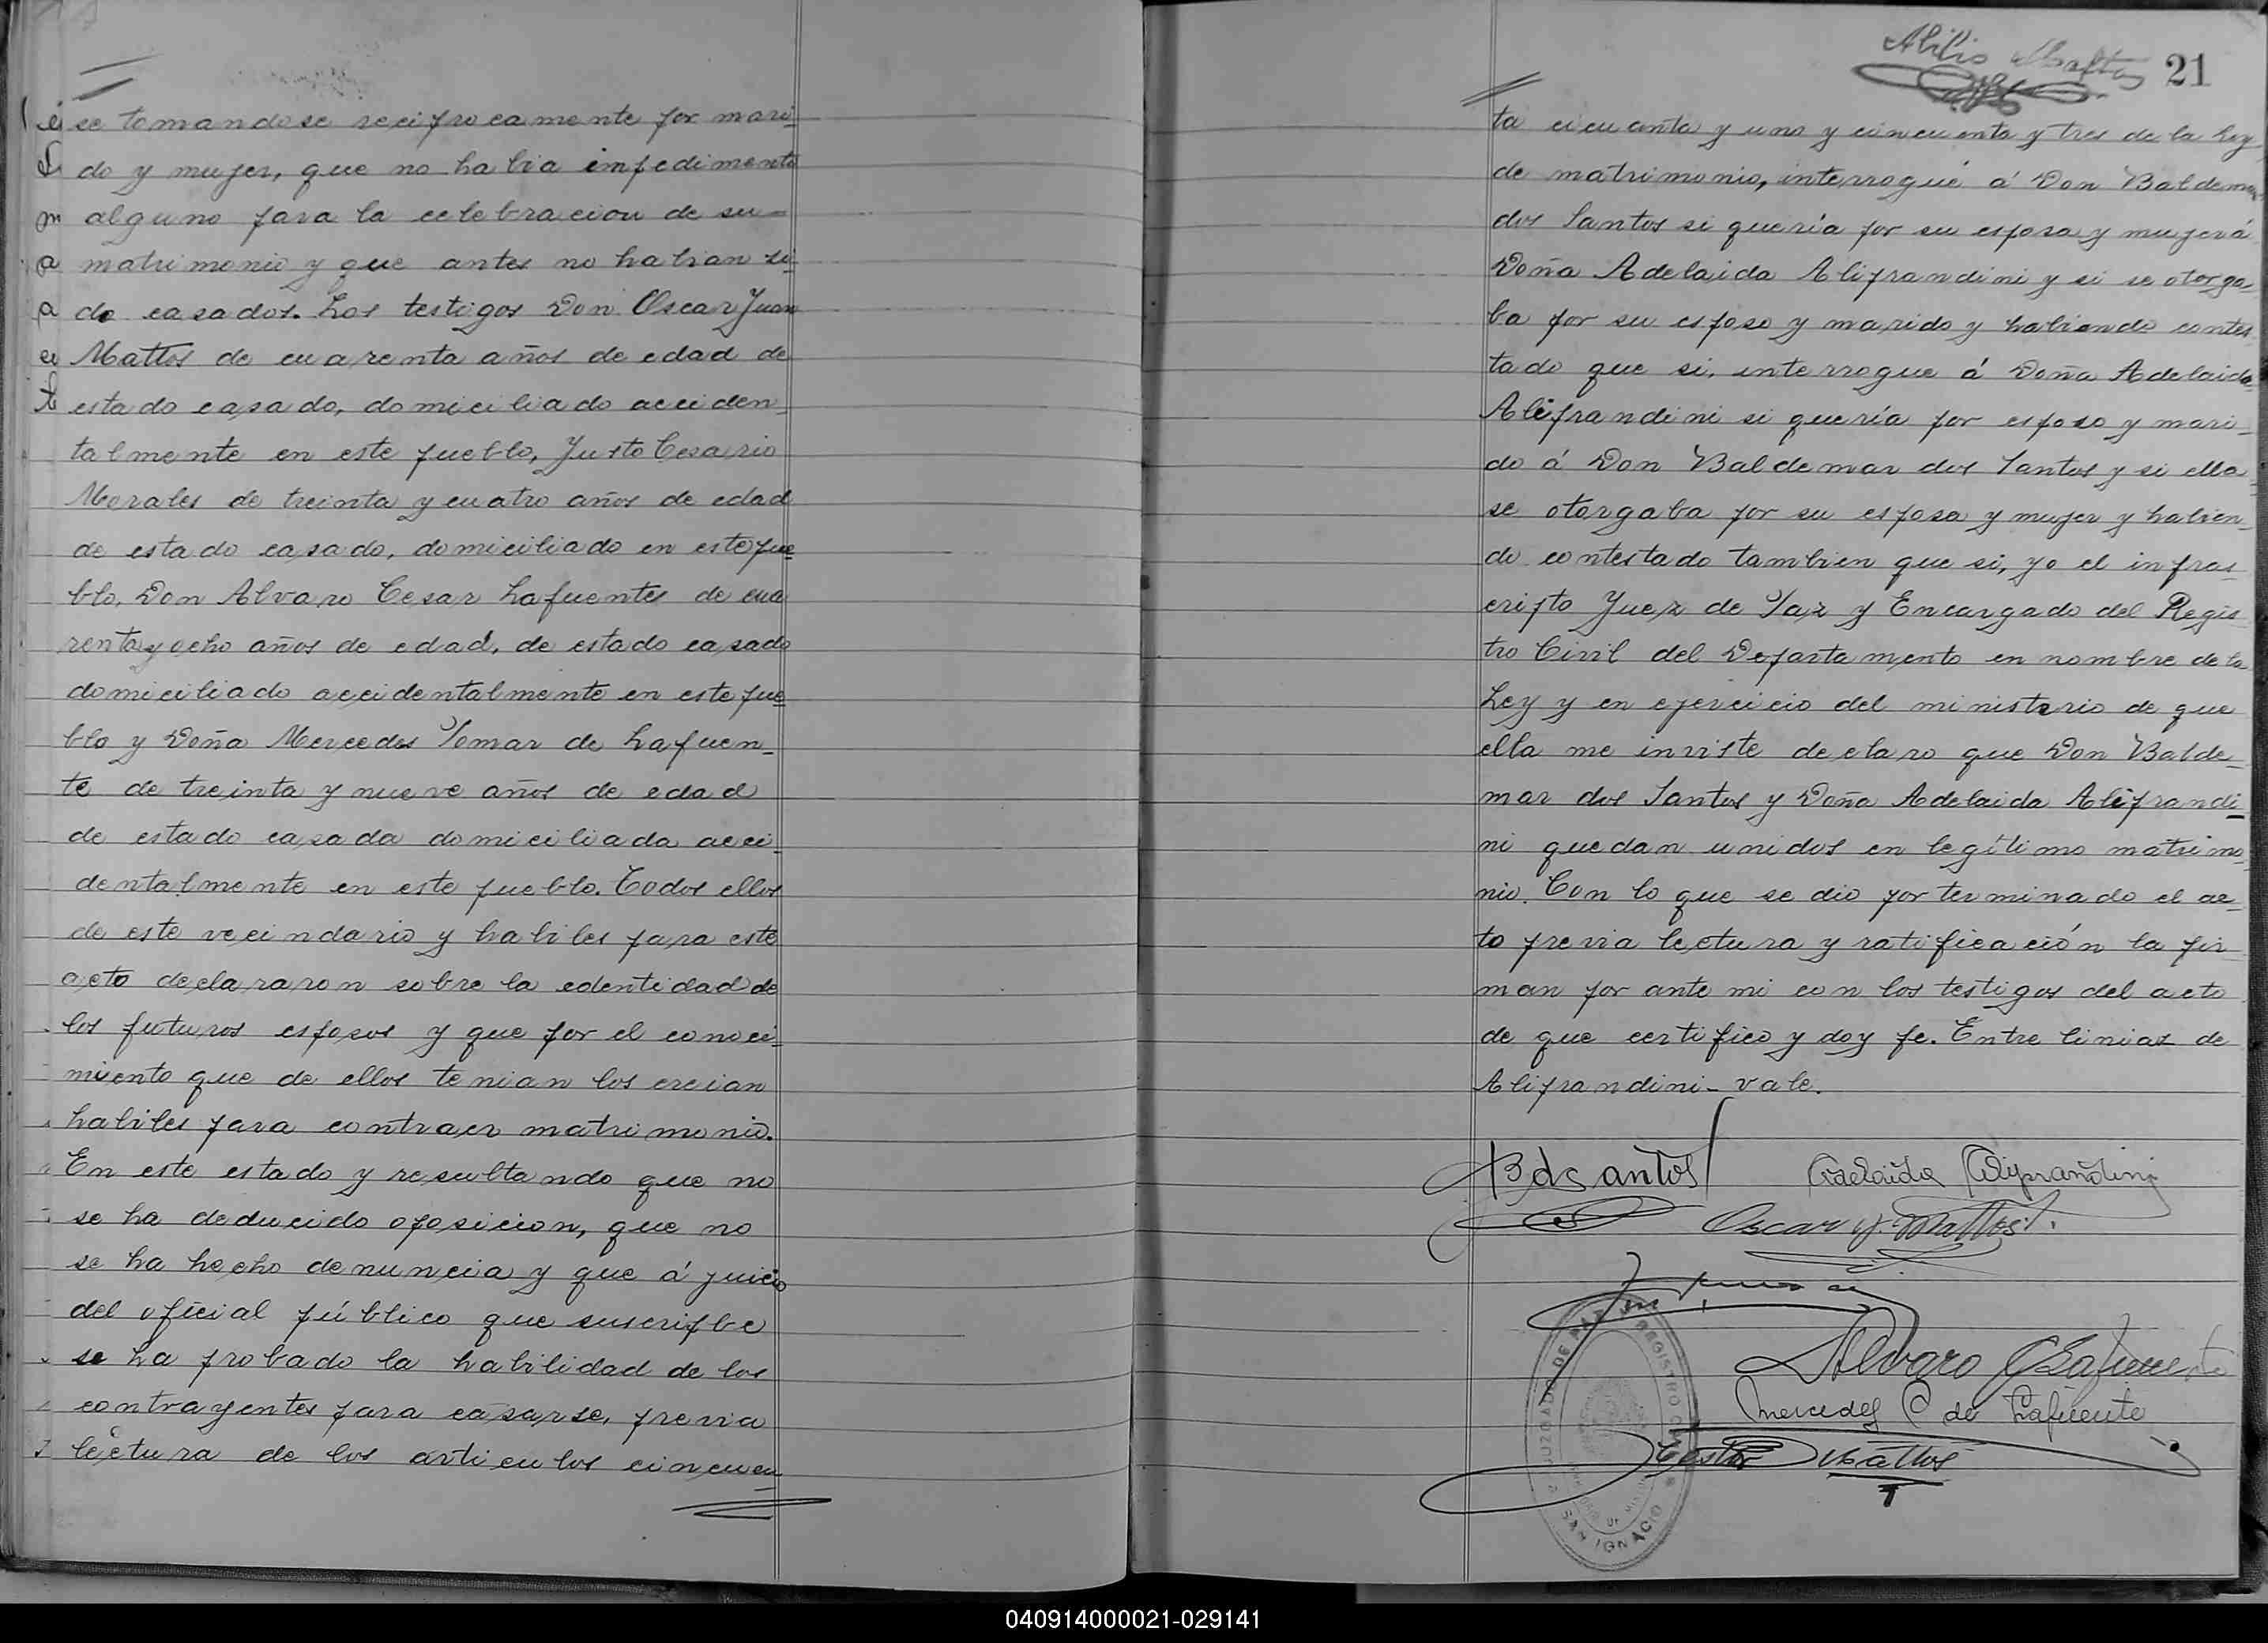 se tomandose reciprocamente por mari-
do y mujer, que no habia impedimento
alguno para la celebracion de su-
matrimonio y que antes no habian si-
do casados. Los testigos Don Oscar Juan
Mattos de cuarenta años de edad de
estado casado, domiciliado acciden-
talmente en este pueblo, Justo Cesario
Morales de treinta y cuatro años de edad
de estado casado, domiciliado en este pue-
blo, Don Alvaro Cesar Lafuentes de cua
renta y ocho años de edad, de estado casado
domiciliado accidentalmente en este pue-
blo y Doña Mercedes Tomar de Lafuen-
te de treinta y nueve años de edad
de estado casada domiciliada acci-
dentalmente en este pueblo. Todos ellos
de este vecindario y habiles para este
acto declararon sobre la edentidad de
los futuros esposos y que por el conoci-
miento que de ellos tenian los creian
habiles para contraer matrimonio.
En este estado y resultando que no
se ha deducido oposicion, que no
se ha hecho denuncia y que á juicio
del oficial público que suscripbe
se ha probado la habilidad de los
contrayentes para casarse, previa
lectura de los articulos cincuen
21
ta cicuanta y uno y cincuenta y tres de la Ley
de matrimonio, interrogué á Don Baldemar
dos Santos si quería por su esposa y mujer á
Doña Adelaida Aliprandini y si se otorga-
ba por su esposo y marido y habiendo contes-
tado que si, interrogue á Doña Adelaida
Aliprandini si quería por esposo y mari-
do á Don Baldemar dos Santos y si ella
se otorgaba por su esposa y mujer y habien-
do contestado tambien que si, yo el infras-
cripto Juez de Paz y Encargado del Regis
tro Civil del Departamento en nombre de la
Ley y en ejercicio del ministerio de que
ella me inviste declaro que Don Balde-
mar dos Santos y Doña Adelaida Aliprandi-
ni quedan unidos en legítimo matrimo-
nio. Con lo que se dio por terminado el ac-
to previa lectura y ratificación la fir-
man por ante mi con los testigos del acto
de que certifico y doy fe. Entre linias de
Aliprandini - vale.
B dSantos Adelaida Aliprandini
Oscar J. Mattos
Alvaro C Lafuente
Mercedes C de Lafuente
Mattos
JUZGADO DE PAZ REGISTRO CIVIL
SAN IGNACIO
040914000021-029141